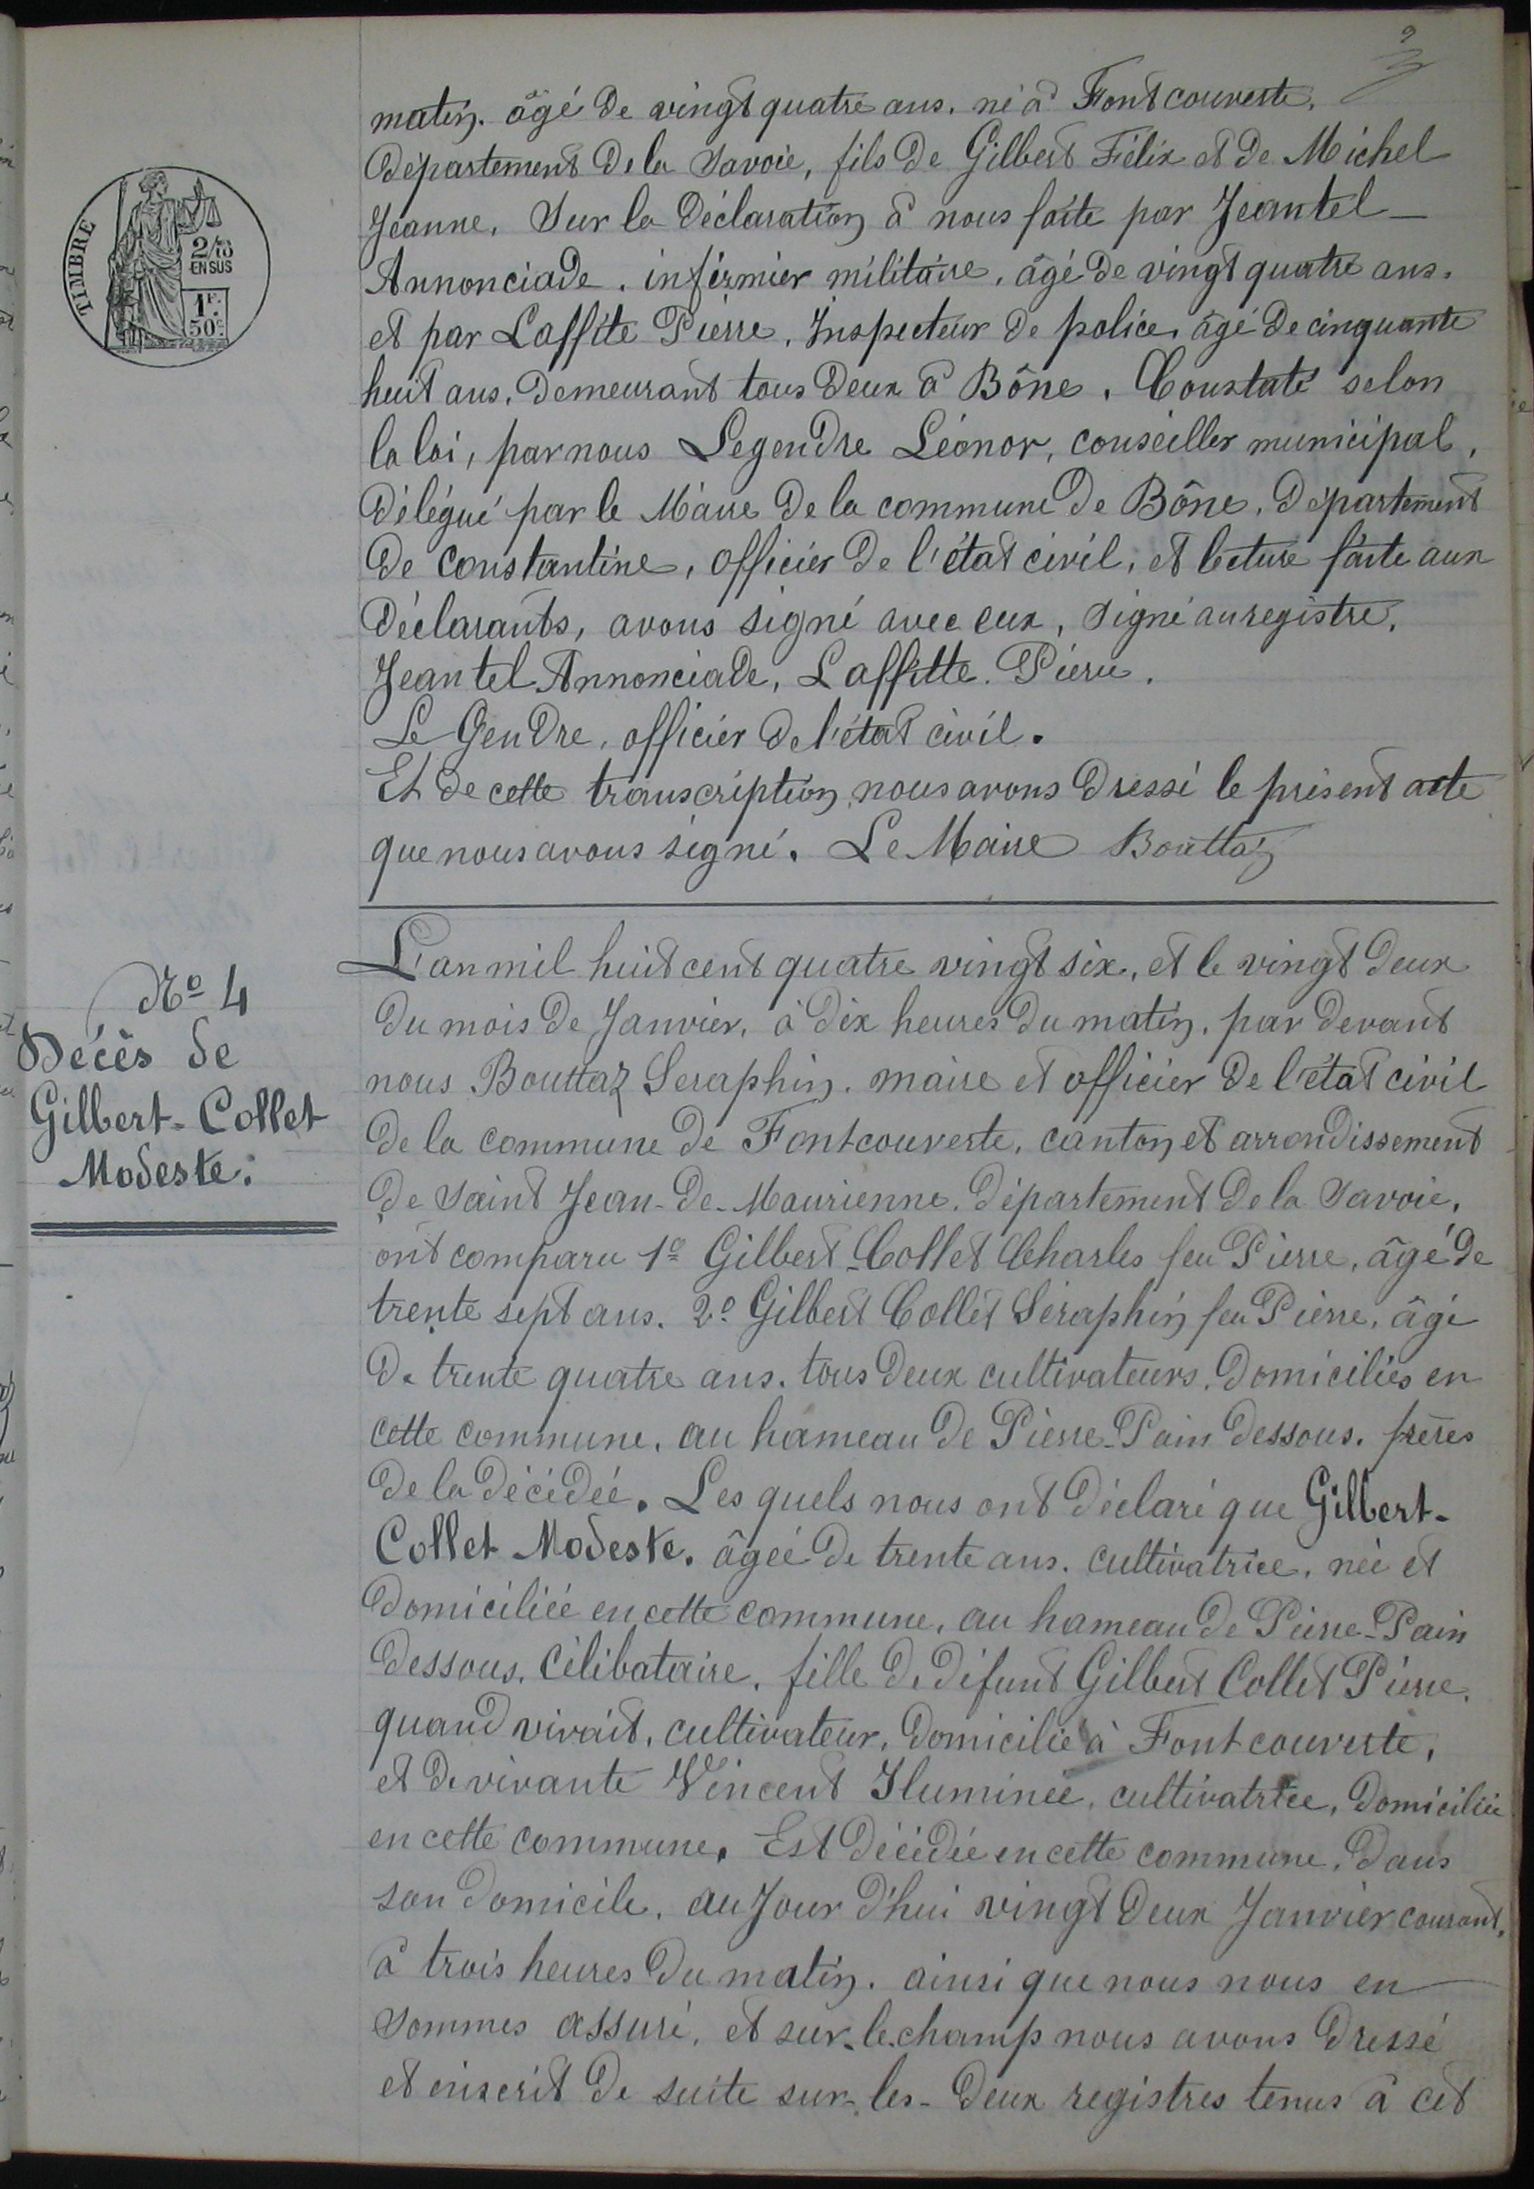 matin. âgé de vingt quatre ans. né à Fontcouverte,
département de la Savoie, fils de Gilbert Félix et de Michel
Jeanne, Sur la déclaration à nous faite par Jeantel
Annonciade, infirmier militaire, âgé de vingt quatre ans.
et par Laffite Pierre, Inspecteur de police, âgé de cinquante
huit ans, demeurant tous deux à Bône. Constaté selon
la loi, par nous Legendre Léonor, conseiller municipal,
délégué par le Maire de la commune de Bône, département
de Constantine, officier de l'état civil, et lecture faite aux
déclarants, avons signé avec eux, Signé au registre,
Jeantel Annonciade, Laffitte Pierre,
Le Gendre, officier de l'état civil.
Et de cette transcription, nous avons dressé le présent acte
que nous avons signé. Le Maire Bouttaz
TIMBRE
2/10
EN SUS
1F.
50c.
No 4
Décès de
Gilbert-Collet
Modeste.
L'an mil huit cent quatre vingt six, et le vingt deux
du mois de Janvier, à dix heures du matin, par devant
nous Bouttaz Seraphin, maire et officier de l'état civil
de la commune de Fontcouverte, canton et arrondissement
de Saint Jean-de-Maurienne, département de la Savoie,
ont comparu 1o Gilbert-Collet Charles feu Pierre, âgé de
trente sept ans. 2o Gilbert Collet Séraphin feu Pierre, âgé
de trente quatre ans, tous deux cultivateurs, domiciliés en
cette commune, au hameau de Pierre-Pain dessous, frères
de la décédée. Les quels nous ont déclaré que Gilbert-
Collet Modeste, âgée de trente ans, cultivatrice, née et
domiciliée en cette commune, au hameau de Pierre-Pain
dessous, célibataire, fille de défunt Gilbert Collet Pierre,
quand vivait, cultivateur, domicilié à Fontcouverte,
et de vivante Vincent Iluminée, cultivatrice, domiciliée
en cette commune. Est décédée en cette commune, dans
son domicile, au Jour d'hui vingt deux Janvier courant,
à trois heures du matin, ainsi que nous nous en
sommes assuré, et sur-le-champ nous avons dressé
et inscrit de suite sur-les-deux registres tenus à cet